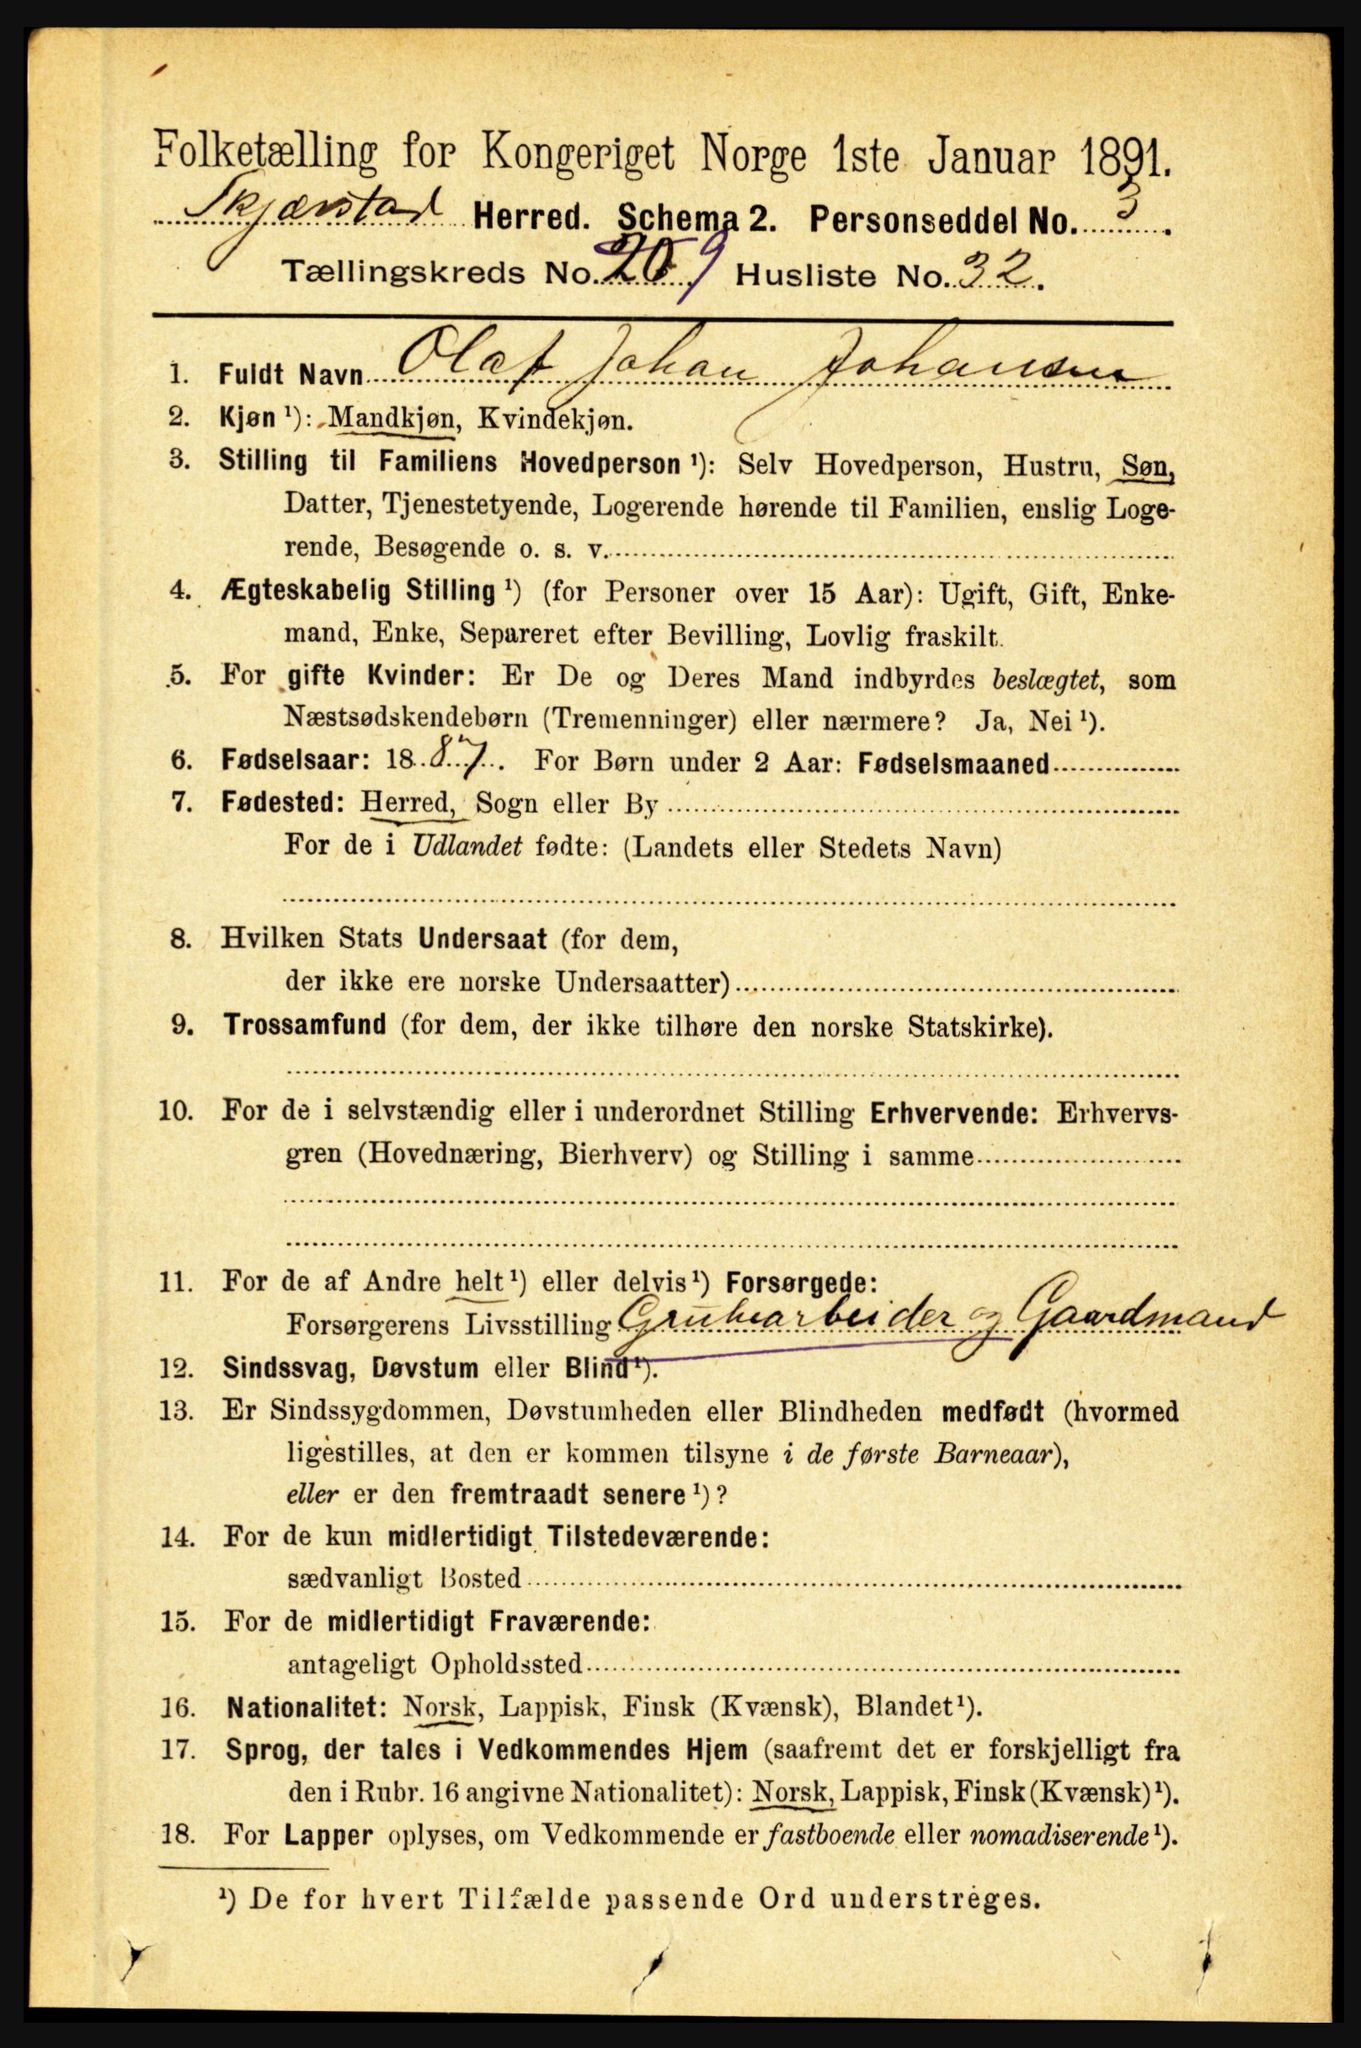 Folketælling for Kongeriget Norge 1ste Januar 1891.
Skjærstad Herred. Schema 2. Personseddel No. 3.
Tællingskreds No. 20 9 Husliste No. 32.
1. Fuldt Navn Olaf Johan Johansen
2. Kjøn ¹): Mandkjøn, Kvindekjøn.
3. Stilling til Familiens Hovedperson ¹): Selv Hovedperson, Hustru, Søn,
Datter, Tjenestetyende, Logerende hørende til Familien, enslig Loge-
rende, Besøgende o. s. v.
4. Ægteskabelig Stilling ¹) (for Personer over 15 Aar): Ugift, Gift, Enke-
mand, Enke, Separeret efter Bevilling, Lovlig fraskilt.
5. For gifte Kvinder: Er De og Deres Mand indbyrdes beslægtet, som
Næstsødskendebørn (Tremenninger) eller nærmere? Ja, Nei ¹).
6. Fødselsaar: 1887. For Børn under 2 Aar: Fødselsmaaned
7. Fødested: Herred, Sogn eller By
For de i Udlandet fødte: (Landets eller Stedets Navn)
8. Hvilken Stats Undersaat (for dem,
der ikke ere norske Undersaatter)
9. Trossamfund (for dem, der ikke tilhøre den norske Statskirke).
10. For de i selvstændig eller i underordnet Stilling Erhvervende: Erhvervs-
gren (Hovednæring, Bierhverv) og Stilling i samme
11. For de af Andre helt ¹) eller delvis ¹) Forsørgede:
Forsørgerens Livsstilling Grubearbeider og Gaardmand
12. Sindssvag, Døvstum eller Blind ¹).
13. Er Sindssygdommen, Døvstumheden eller Blindheden medfødt (hvormed
ligestilles, at den er kommen tilsyne i de første Barneaar),
eller er den fremtraadt senere ¹)?
14. For de kun midlertidigt Tilstedeværende:
sædvanligt Bosted
15. For de midlertidigt Fraværende:
antageligt Opholdssted
16. Nationalitet: Norsk, Lappisk, Finsk (Kvænsk), Blandet ¹).
17. Sprog, der tales i Vedkommendes Hjem (saafremt det er forskjelligt fra
den i Rubr. 16 angivne Nationalitet): Norsk, Lappisk, Finsk (Kvænsk) ¹).
18. For Lapper oplyses, om Vedkommende er fastboende eller nomadiserende ¹).
¹) De for hvert Tilfælde passende Ord understreges.